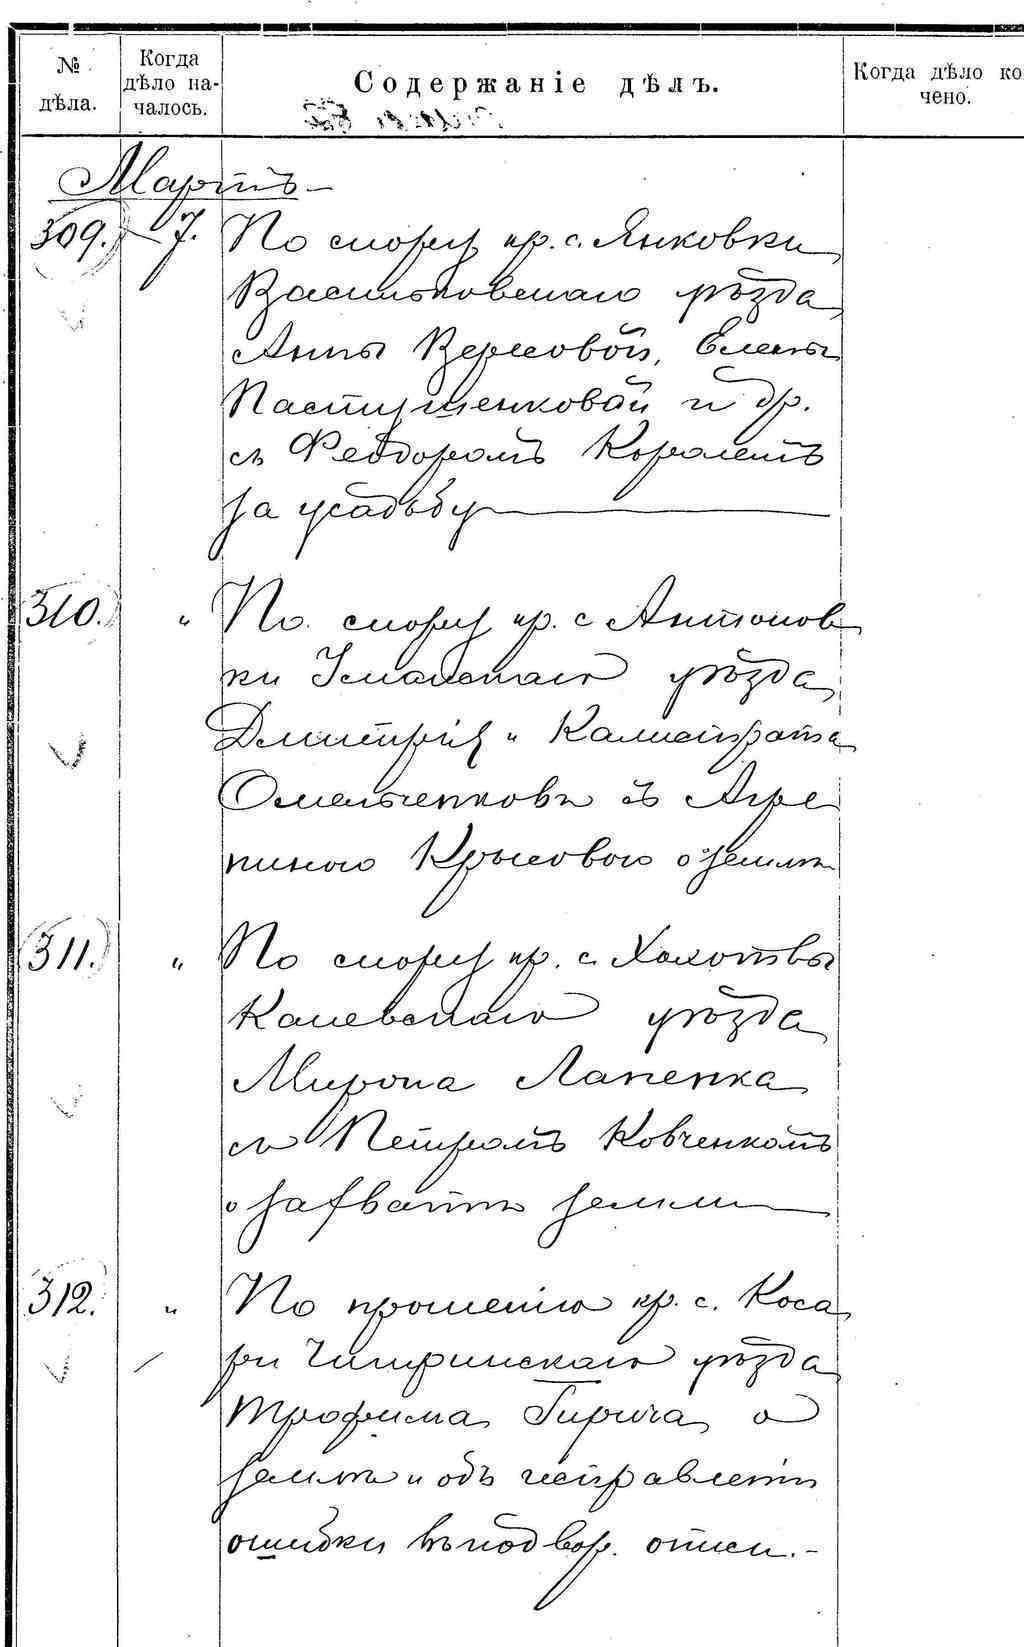 № дѣла.
Когда дѣло на-
чалось.
Содержаніе дѣлъ.
Когда дѣло ко
чено.
Мартъ
309. 7. По спору кр. с. Янковки
Васильковскаго уѣзда
Анны Версовой, Елены
Пастушенковой и др.
съ Феодоромъ Королемъ
за усадьбу
310. " По спору кр. с Антонов
ки Уманскаго уѣзда
Дмитрія и Калистрата
Омельченковъ съ Агре
пиною Крысовою о землѣ
311. " По спору кр. с. Хохотвы
Каневскаго уѣзда
Мирона Лапенка
съ Петромъ Ковченкомъ
о захватѣ земли
312. " По прошенію кр. с. Коса
ри Чигиринскаго уѣзда
Трофима Гирича о
землѣ и объ исправленіи
ошибки въ подвор. описи.-